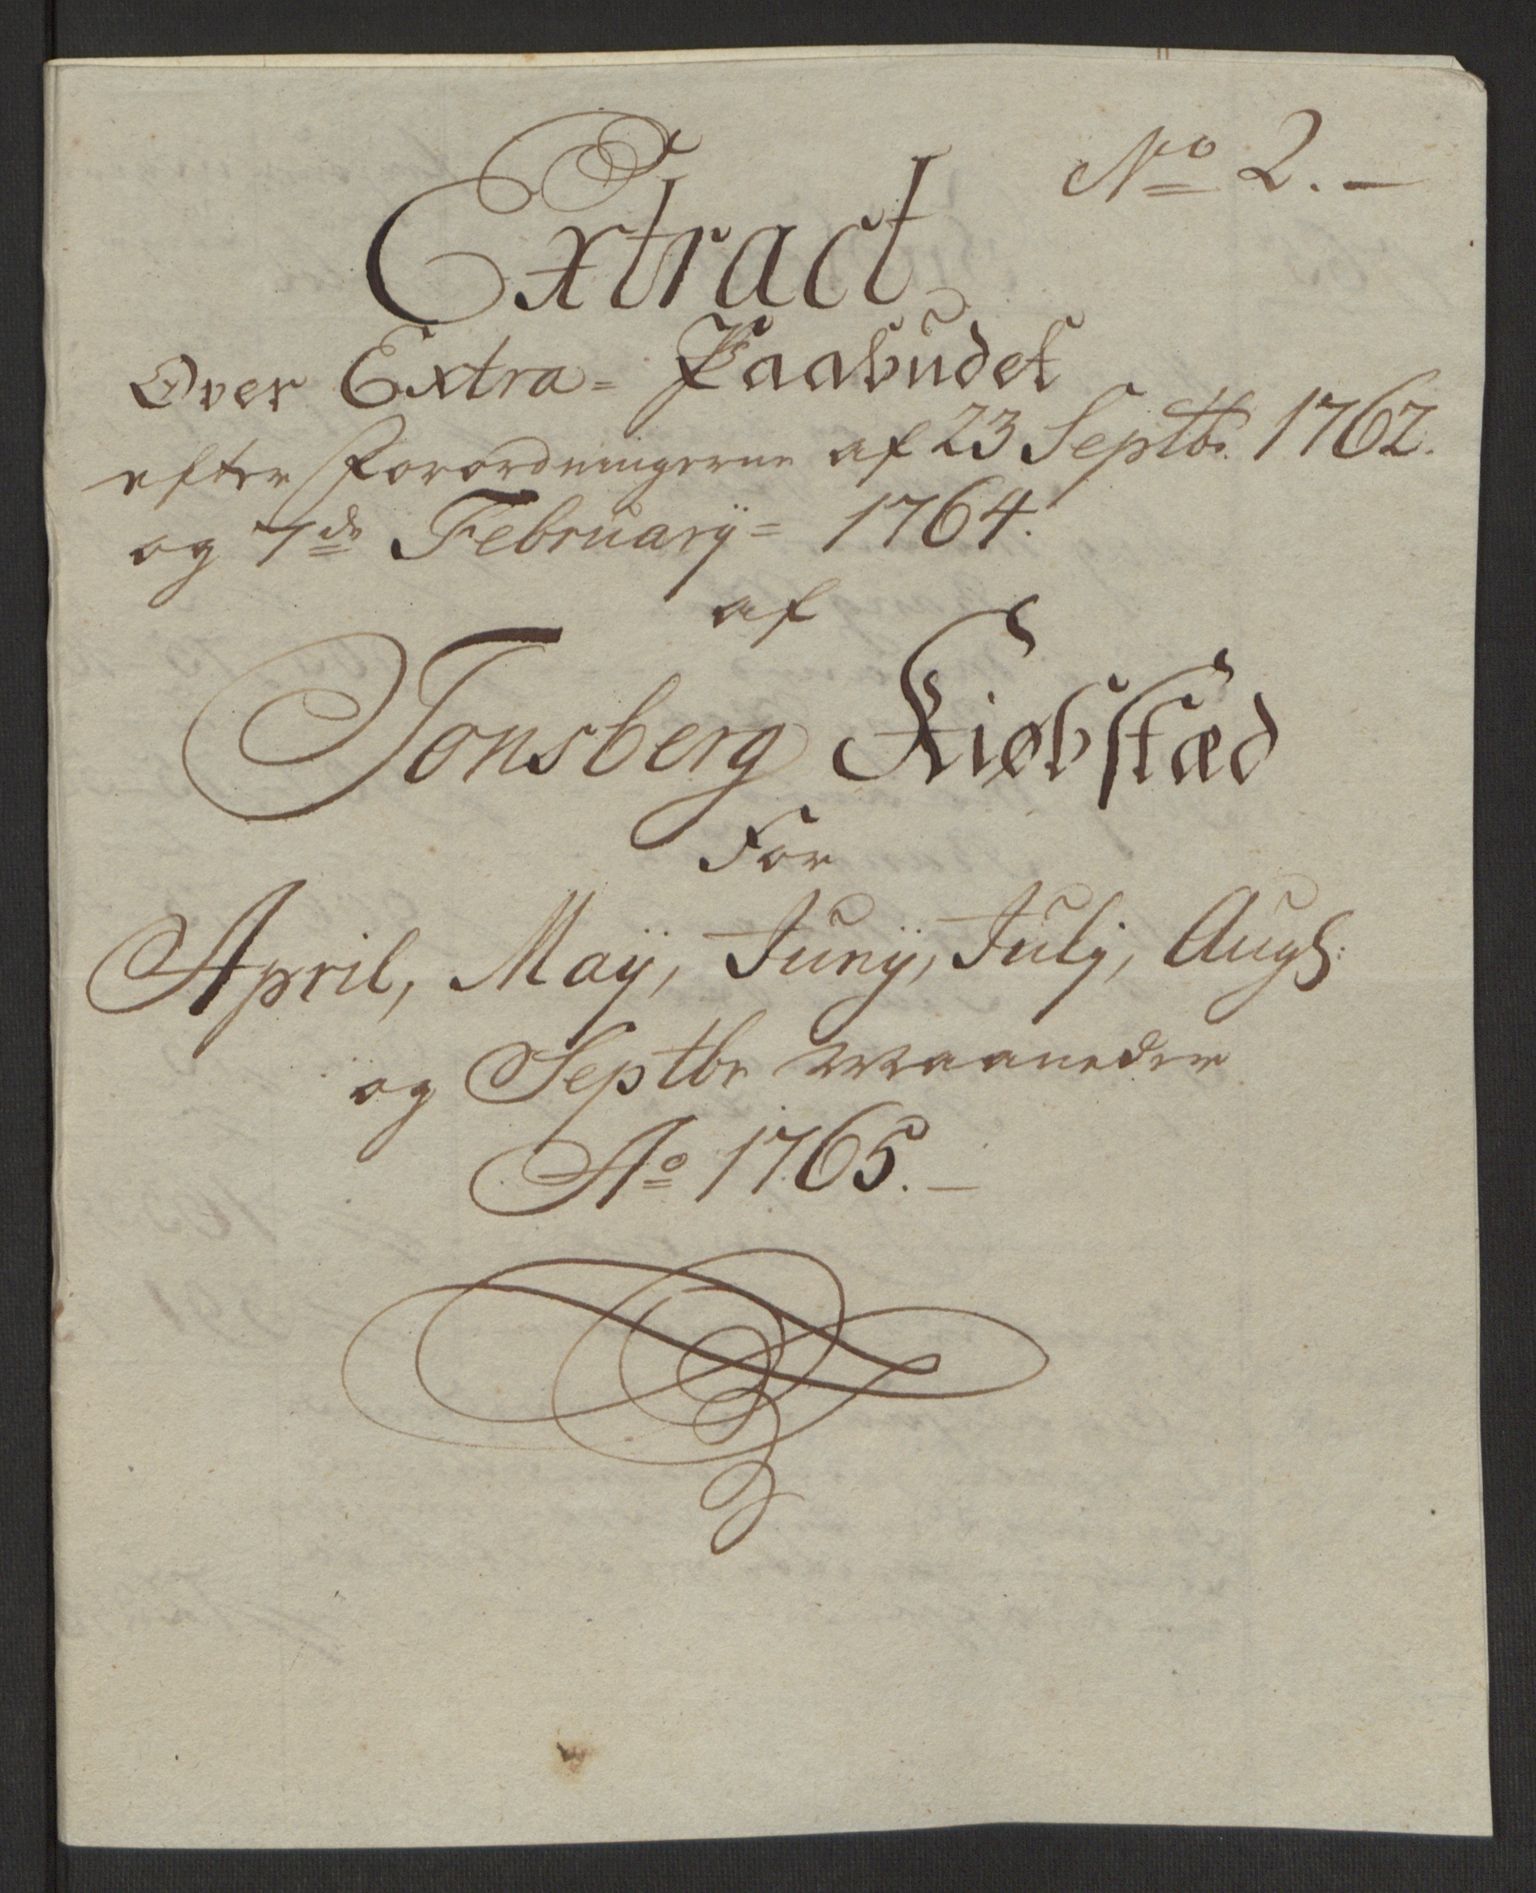 No 2. –
Extract
Over Extra= Paabudet
efter Forordningerne af 23 Septbr. 1762.
og 7de Februarÿ= 1764.
af
Tonsberg Kiøbstæd
For
April, Maÿ, Junÿ, Julÿ, Augs:
og Septbr Maaneder
Ao 1765. –